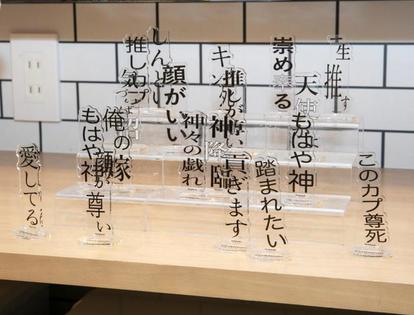 一生推す
崇め奉る
天使
もはや神
このカプ尊死
踏まれたい
貢ぎます
推しが尊い
神々の戯れ
顔がいい
しんどい
推しカプ
俺の嫁
もはや神
愛してる